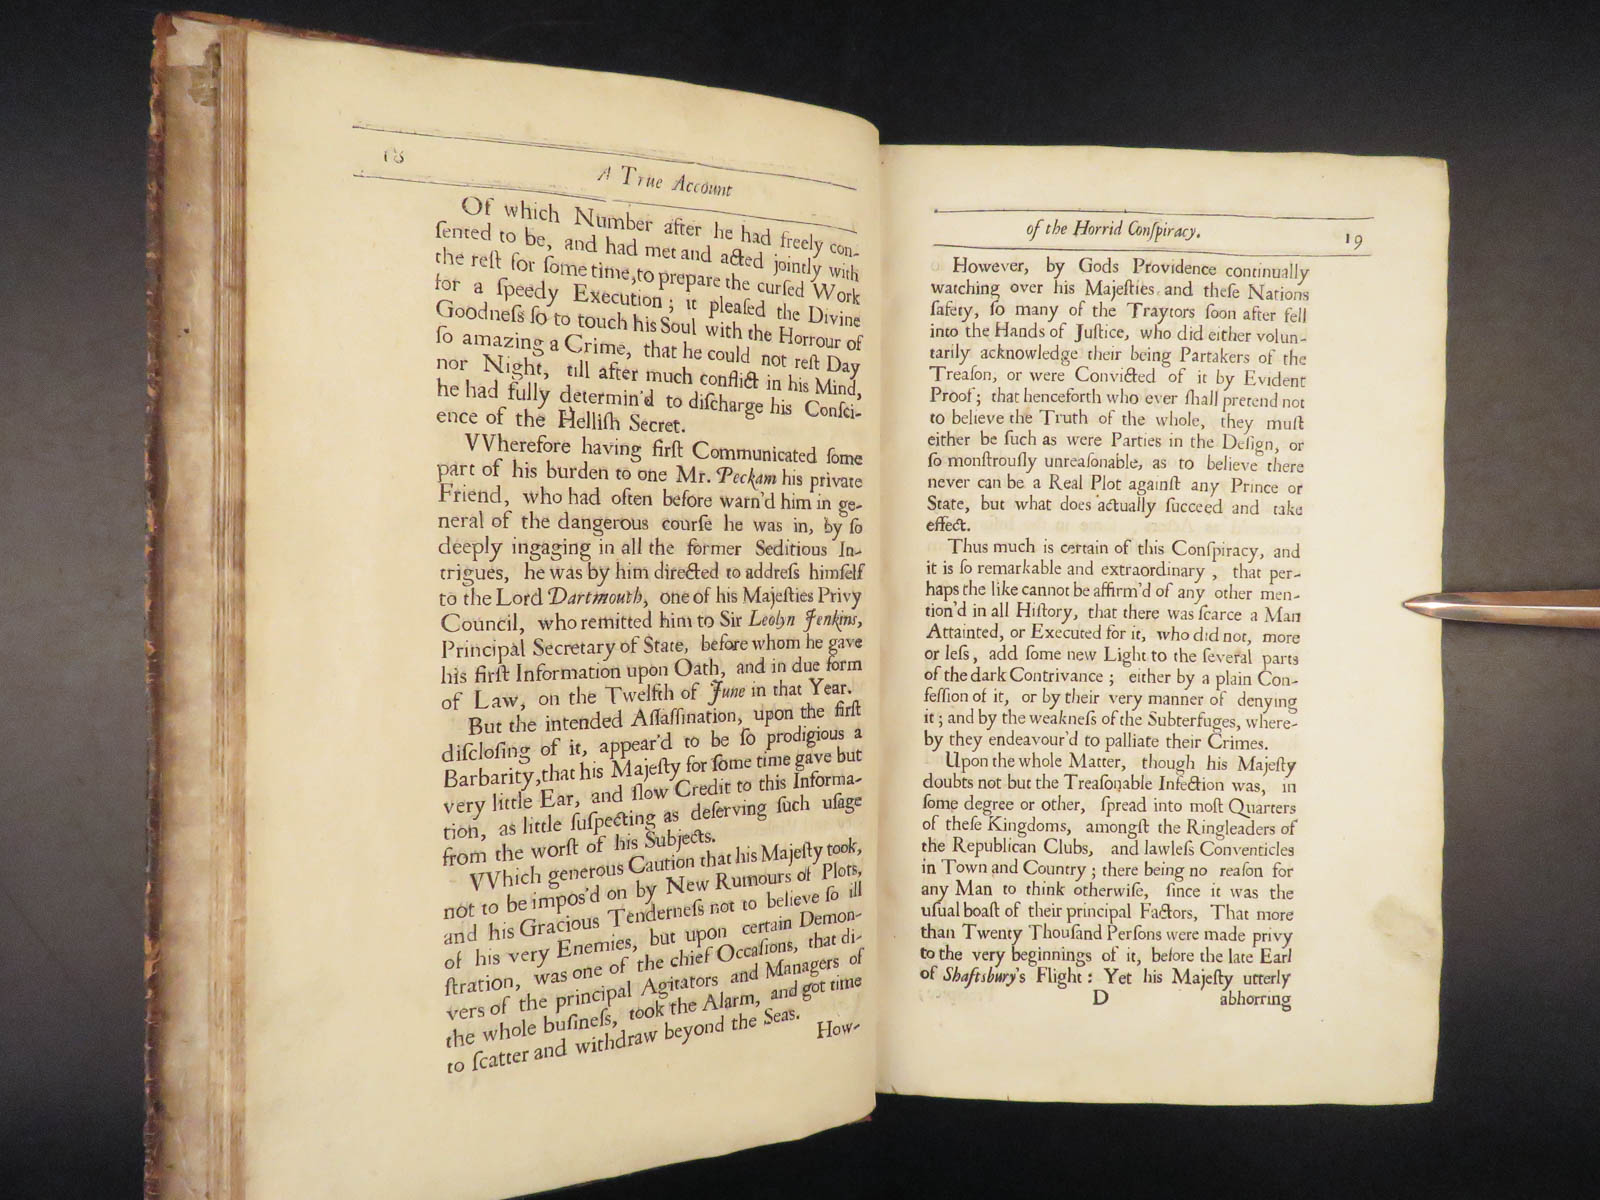 18
A True Account
Of which Number after he had freely con-
ſented to be, and had met and acted jointly with
the reſt for ſome time, to prepare the curſed Work
for a ſpeedy Execution; it pleaſed the Divine
Goodneſs ſo to touch his Soul with the Horrour of
ſo amazing a Crime, that he could not reſt Day
nor Night, till after much conflict in his Mind,
he had fully determin'd to diſcharge his Conſci-
ence of the Helliſh Secret.
VVherefore having firſt Communicated ſome
part of his burden to one Mr. Peckam his private
Friend, who had often before warn'd him in ge-
neral of the dangerous courſe he was in, by ſo
deeply ingaging in all the former Seditious In-
trigues, he was by him directed to addreſs himſelf
to the Lord Dartmouth, one of his Majeſties Privy
Council, who remitted him to Sir Leolyn Jenkins,
Principal Secretary of State, before whom he gave
his firſt Information upon Oath, and in due form
of Law, on the Twelfth of June in that Year.
But the intended Aſſaſſination, upon the firſt
diſcloſing of it, appear'd to be ſo prodigious a
Barbarity, that his Majeſty for ſome time gave but
very little Ear, and ſlow Credit to this Informa-
tion, as little ſuſpecting as deſerving ſuch uſage
from the worſt of his Subjects.
VVhich generous Caution that his Majeſty took,
not to be impos'd on by New Rumours of Plots,
and his Gracious Tenderneſs not to believe ſo ill
of his very Enemies, but upon certain Demon-
ſtration, was one of the chief Occaſions, that di-
vers of the principal Agitators and Managers of
the whole buſineſs, took the Alarm, and got time
to ſcatter and withdraw beyond the Seas.
How-
of the Horrid Conſpiracy.
19
However, by Gods Providence continually
watching over his Majeſties and theſe Nations
ſafety, ſo many of the Traytors ſoon after fell
into the Hands of Juſtice, who did either volun-
tarily acknowledge their being Partakers of the
Treaſon, or were Convicted of it by Evident
Proof; that henceforth who ever ſhall pretend not
to believe the Truth of the whole, they muſt
either be ſuch as were Parties in the Deſign, or
ſo monſtrouſly unreaſonable, as to believe there
never can be a Real Plot againſt any Prince or
State, but what does actually ſucceed and take
effect.
Thus much is certain of this Conſpiracy, and
it is ſo remarkable and extraordinary, that per-
haps the like cannot be affirm'd of any other men-
tion'd in all Hiſtory, that there was ſcarce a Man
Attainted, or Executed for it, who did not, more
or leſs, add ſome new Light to the ſeveral parts
of the dark Contrivance; either by a plain Con-
feſſion of it, or by their very manner of denying
it; and by the weakneſs of the Subterfuges, where-
by they endeavour'd to palliate their Crimes.
Upon the whole Matter, though his Majeſty
doubts not but the Treaſonable Infection was, in
ſome degree or other, ſpread into moſt Quarters
of theſe Kingdoms, amongſt the Ringleaders of
the Republican Clubs, and lawleſs Conventicles
in Town and Country; there being no reaſon for
any Man to think otherwiſe, ſince it was the
uſual boaſt of their principal Factors, That more
than Twenty Thouſand Perſons were made privy
to the very beginnings of it, before the late Earl
of Shaftsbury's Flight: Yet his Majeſty utterly
D abhorring